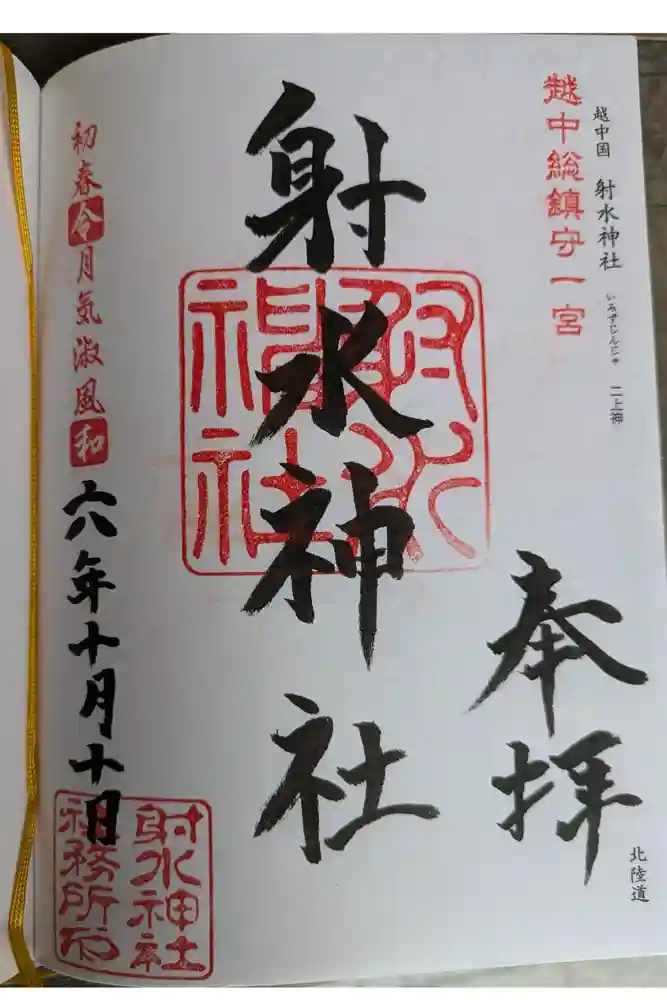 越中国 射水神社 いみずじんじゃ 二上神
北陸道
越中総鎮守一宮
奉拝
射水神社
射水神社
初春令月気淑風和
六年十月十日
射水神社
社務所印